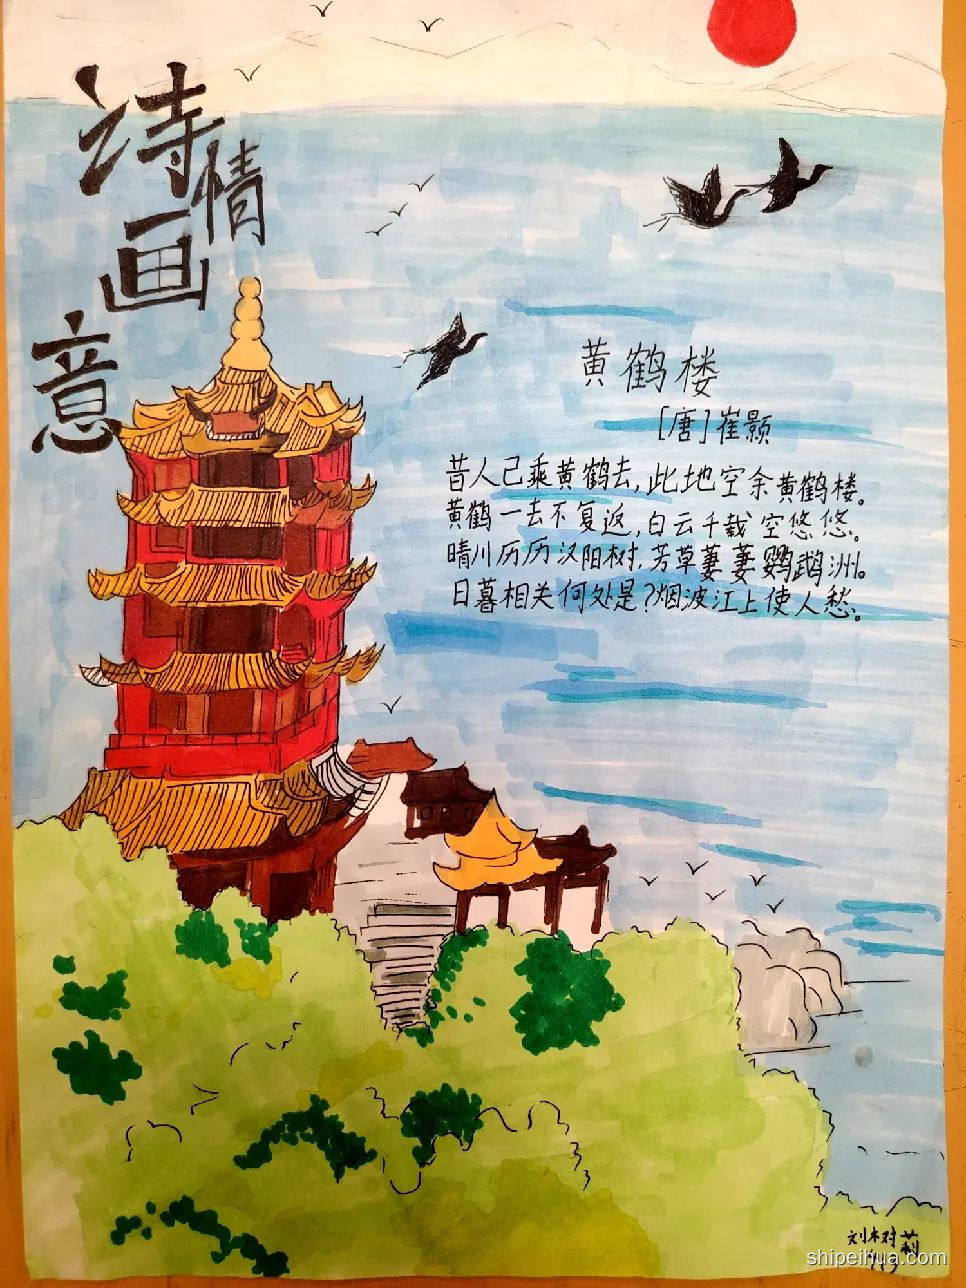 诗情画意
黄鹤楼
[唐]崔颢
昔人已乘黄鹤去,此地空余黄鹤楼。
黄鹤一去不复返,白云千载空悠悠。
晴川历历汉阳树,芳草萋萋鹦鹉洲。
日暮相关何处是?烟波江上使人愁。
刘树
shipeihua.com